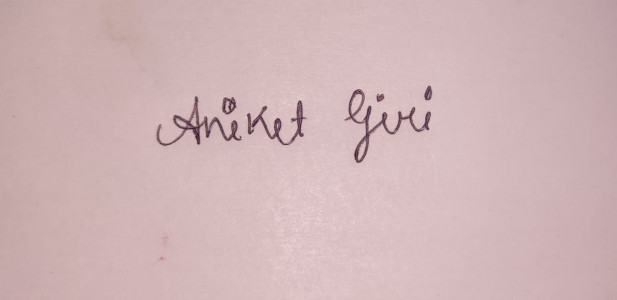 Aniket Giri